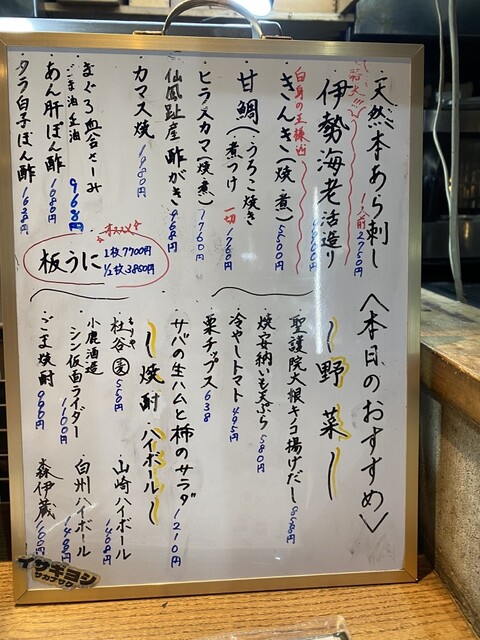 〈本日のおすすめ〉
特大!!!
・天然本あら刺し
1人前 2750円
・伊勢海老活造り
白身の王様
・きんき(焼、煮) 5500円
・甘鯛(うろこ焼き 煮つけ 一切 1760円
・ヒラスカマ(焼、煮) 1760円
・仙鳳趾産 酢がき 968円
・カマス焼 1980円
・まぐろ血合さしみ
ごま油
968円
・あん肝ぽん酢 1080円
・タラ白子ぽん酢 1638円
オススメ
板うに
1枚 7700円
1/2枚 3850円
〜野菜〜
・聖護院大根キノコ揚げだし 858円
・焼安納いも天ぷら 580円
・冷やしトマト 495円
・栗チップス 638
・サバの生ハムと柿のサラダ 1210円
〜焼酎・ハイボール〜
・杜谷 麦 550円
・小鹿酒造
シン仮面ライダー 1100円
・ごま焼酎 990円
・山崎ハイボール
・白州ハイボール
・森伊蔵
イサギヨシ
サカブック